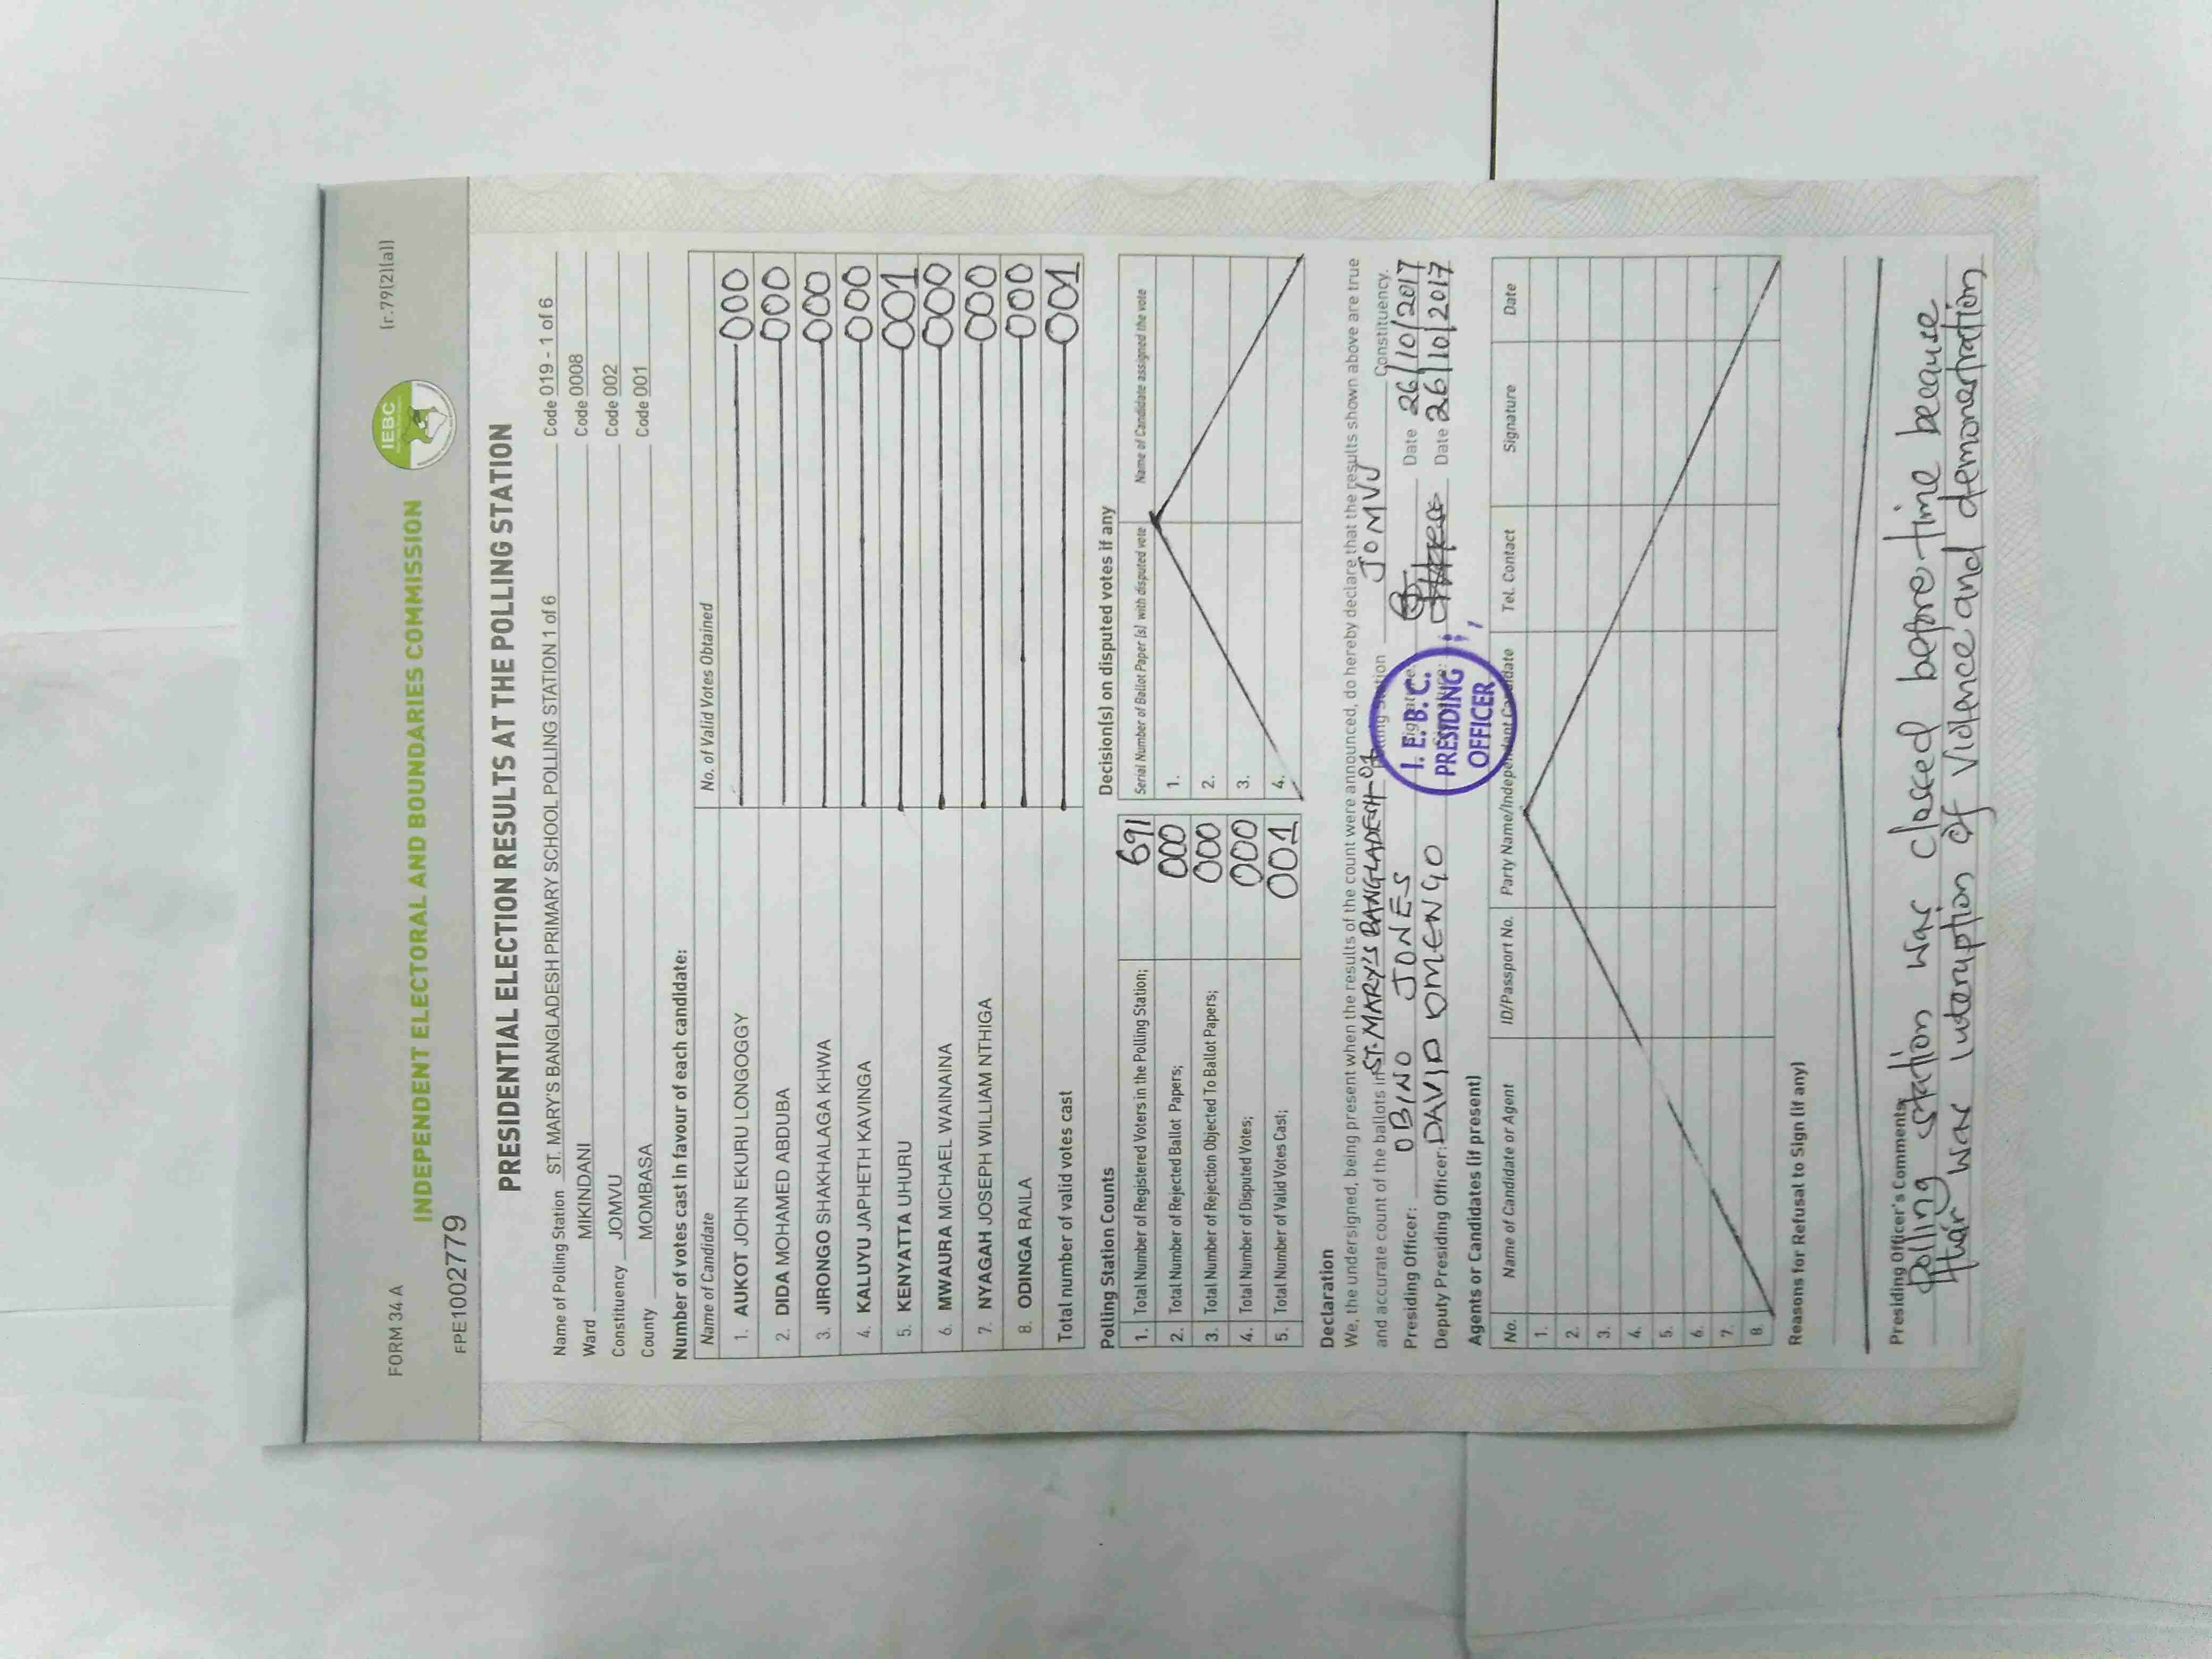 FORM 34 A
(r.79(2)(a))
IEBC
INDEPENDENT ELECTORAL AND BOUNDARIES COMMISSION
FPE1002779
PRESIDENTIAL ELECTION RESULTS AT THE POLLING STATION
Name of Polling Station ST. MARY'S BANGLADESH PRIMARY SCHOOL POLLING STATION 1 of 6 Code 019 - 1 of 6
Ward MIKINDANI Code 0008
Constituency JOMVU Code 002
County MOMBASA Code 001
Number of votes cast in favour of each candidate:
Name of Candidate No. of Valid Votes Obtained
1. AUKOT JOHN EKURU LONGOGGY 000
2. DIDA MOHAMED ABDUBA 000
3. JIRONGO SHAKHALAGA KHWA 000
4. KALUYU JAPHETH KAVINGA 000
5. KENYATTA UHURU 001
6. MWAURA MICHAEL WAINAINA 000
7. NYAGAH JOSEPH WILLIAM NTHIGA 000
8. ODINGA RAILA 000
Total number of valid votes cast 001
Polling Station Counts
1. Total Number of Registered Voters in the Polling Station; 691
2. Total Number of Rejected Ballot Papers; 000
3. Total Number of Rejection Objected To Ballot Papers; 000
4. Total Number of Disputed Votes; 000
5. Total Number of Valid Votes Cast; 001
Decision(s) on disputed votes if any
Serial Number of Ballot Paper (s) with disputed vote Name of Candidate assigned the vote
1.
2.
3.
4.
Declaration
We, the undersigned, being present when the results of the count were announced, do hereby declare that the results shown above are true
and accurate count of the ballots in ST. MARY'S BANGLADESH 01 Polling Station JOMVU Constituency.
Presiding Officer: OBINO JONES Signature: Date 26/10/2017
Deputy Presiding Officer: DAVID OMENGO Date 26/10/2017
I.E.B.C.
PRESIDING
OFFICER
Agents or Candidates (if present)
No. Name of Candidate or Agent ID/Passport No. Party Name/Independent Candidate Tel. Contact Signature Date
1.
2.
3.
4.
5.
6.
7.
8.
Reasons for Refusal to Sign (if any)
Presiding Officer's Comments
Polling station was closed before time because
thair was interuption of violence and demonstration